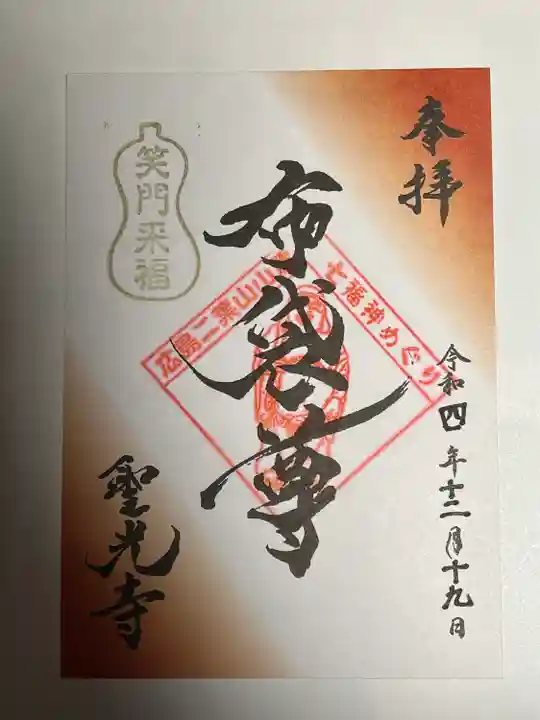 奉拝
令和四年十二月十九日
布袋尊
広島二葉山山
七福神めぐり
笑門来福
聖光寺